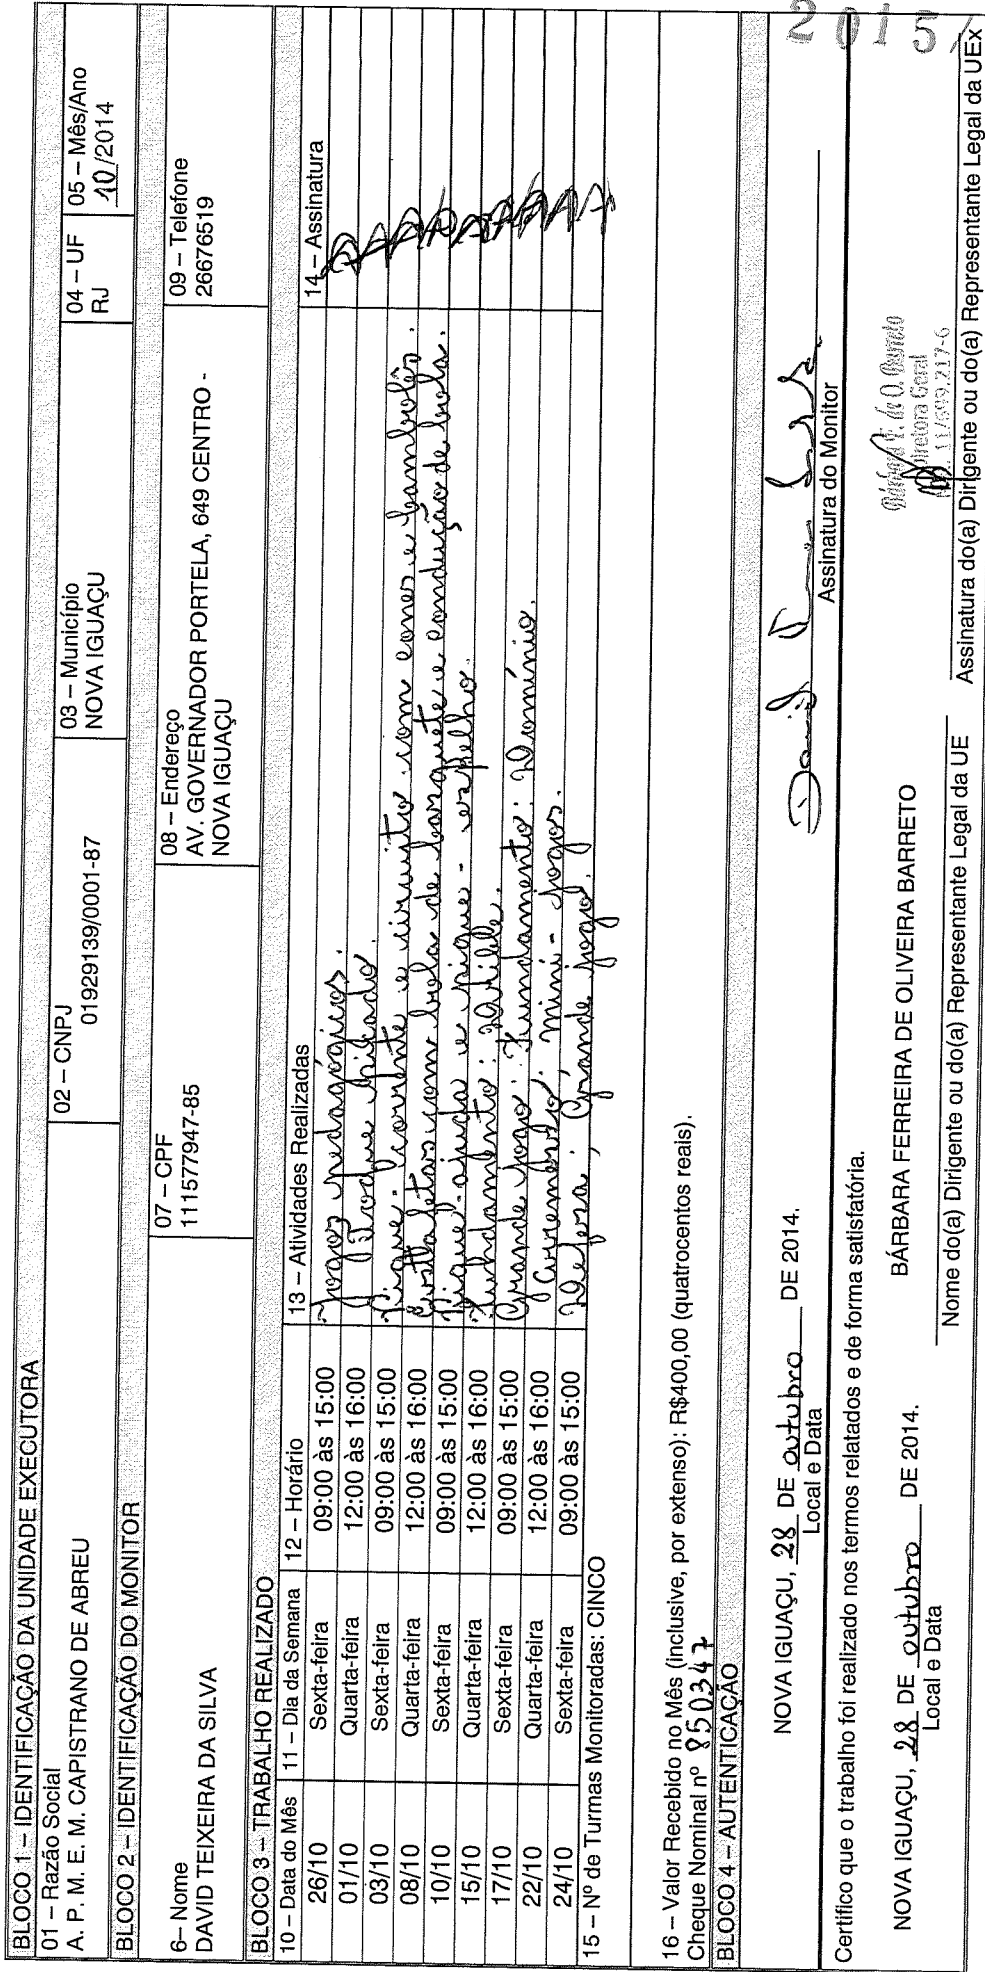 BLOCO 1 – IDENTIFICAÇÃO DA UNIDADE EXECUTORA
01 – Razão Social
A. P. M. E. M. CAPISTRANO DE ABREU
02 – CNPJ
01929139/0001-87
03 – Município
NOVA IGUAÇU
04 – UF
RJ
05 – Mês/Ano
10/2014
BLOCO 2 – IDENTIFICAÇÃO DO MONITOR
6– Nome
DAVID TEIXEIRA DA SILVA
07 – CPF
111577947-85
08 – Endereço
AV. GOVERNADOR PORTELA, 649 CENTRO -
NOVA IGUAÇU
09 – Telefone
26676519
BLOCO 3 – TRABALHO REALIZADO
10 – Data do Mês 11 – Dia da Semana 12 – Horário 13 – Atividades Realizadas 14 – Assinatura
26/10 Sexta-feira 09:00 às 15:00 Jogos pedagógicos.
01/10 Quarta-feira 12:00 às 16:00 Toque ficado
03/10 Sexta-feira 09:00 às 15:00 Pique-corrente e circuito com cones e bambolês.
08/10 Quarta-feira 12:00 às 16:00 Estafetas com bola de basquete e condução de bola.
10/10 Sexta-feira 09:00 às 15:00 Pique-ajuda e pique-espelho.
15/10 Quarta-feira 12:00 às 16:00 Fundamento: Drible.
17/10 Sexta-feira 09:00 às 15:00 Grande jogo. Fundamento: Domínio.
22/10 Quarta-feira 12:00 às 16:00 Arremesso. mini-jogos.
24/10 Sexta-feira 09:00 às 15:00 Defesa; Grande jogo.
15 – Nº de Turmas Monitoradas: CINCO
16 – Valor Recebido no Mês (inclusive, por extenso): R$400,00 (quatrocentos reais).
Cheque Nominal nº 850347
BLOCO 4 – AUTENTICAÇÃO
NOVA IGUAÇU, 28 DE outubro DE 2014.
Local e Data
Assinatura do Monitor
Certifico que o trabalho foi realizado nos termos relatados e de forma satisfatória.
NOVA IGUAÇU, 28 DE outubro DE 2014.
Local e Data
BÁRBARA FERREIRA DE OLIVEIRA BARRETO
Nome do(a) Dirigente ou do(a) Representante Legal da UE
Diretora Geral
11/699.217-6
Assinatura do(a) Dirigente ou do(a) Representante Legal da UEx
2015